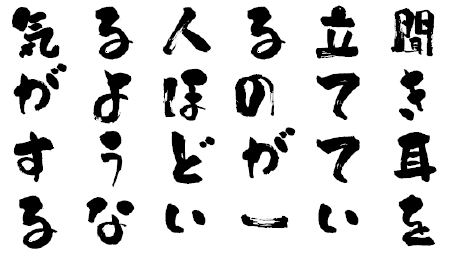 聞き耳を
立ててい
るのが一
人ほどい
るような
気がする